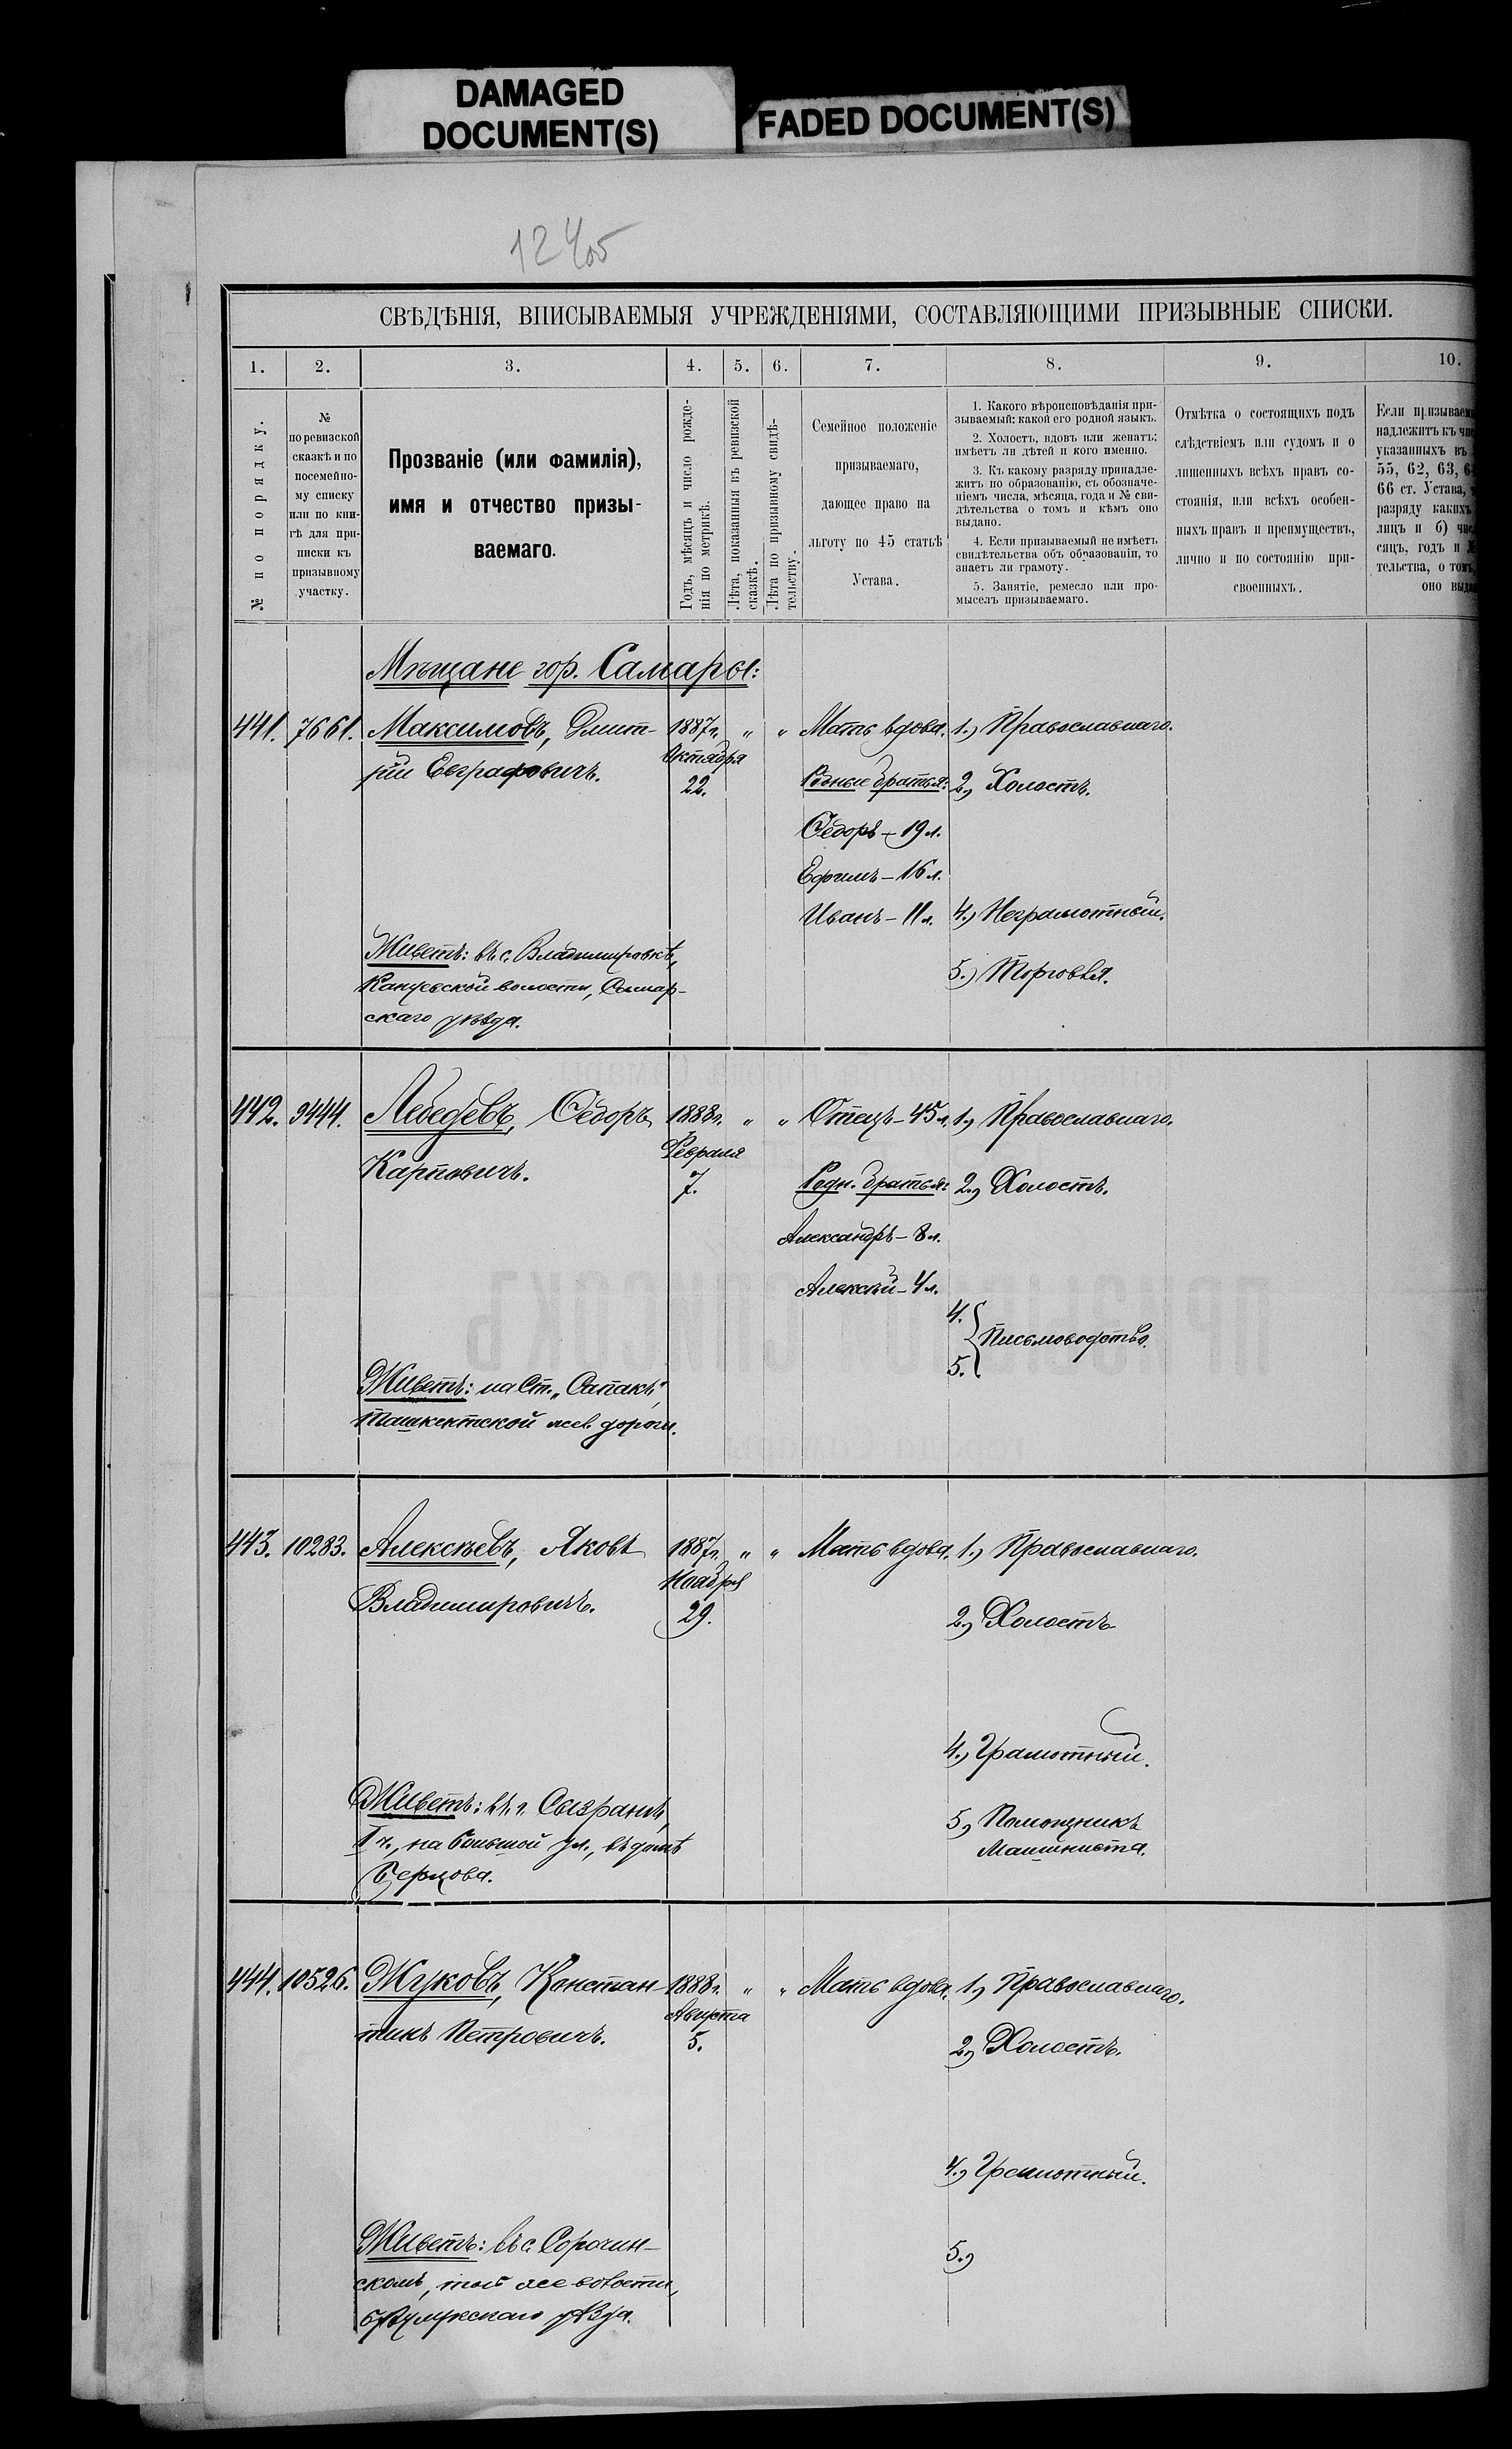 DAMAGED
DOCUMENT(S)
FADED DOCUMENT(S)
СВѢДѢНІЯ, ВПИСЫВАЕМЫЯ УЧРЕЖДЕНІЯМИ, СОСТАВЛЯЮЩИМИ ПРИЗЫВНЫЕ СПИСКИ.
1. 2. 3. 4. 5. 6. 7. 8. 9. 10.
№ по порядку.
№
по ревизской
сказкѣ и по
посемейно-
му списку
или по кни-
гѣ для при-
писки къ
призывному
участку.
Прозваніе (или фамилія),
имя и отчество призы-
ваемаго.
Годъ, мѣсяцъ и число рожде-
нія по метрикѣ.
Лѣта, показанныя въ ревизской
сказкѣ.
Лѣта по призывному свидѣ-
тельству.
Семейное положеніе
призываемаго,
дающее право на
льготу по 45 статьѣ
Устава.
1. Какого вѣроисповѣданія при-
зываемый; какой его родной языкъ.
2. Холостъ, вдовъ или женатъ;
имѣетъ ли дѣтей и кого именно.
3. Къ какому разряду принадле-
житъ по образованію, съ обозначе-
ніемъ числа, мѣсяца, года и № сви-
дѣтельства о томъ и кѣмъ оно
выдано.
4. Если призываемый не имѣетъ
свидѣтельства объ образованіи, то
знаетъ ли грамоту.
5. Занятіе, ремесло или про-
мыселъ призываемаго.
Отмѣтка о состоящихъ подъ
слѣдствіемъ или судомъ и о
лишенныхъ всѣхъ правъ со-
стоянія, или всѣхъ особен-
ныхъ правъ и преимуществъ,
лично и по состоянію при-
своенныхъ.
Если призываем
надлежитъ къ чи
указанныхъ въ
55, 62, 63, 6
66 ст. Устава,
разряду какихъ
лицъ и б) чис
сяцъ, годъ и №
тельства, о томъ,
оно выда
Мѣщане гор. Самары:
441. 7661. Максимовъ, Дмит- 1887г. " " Мать вдова. 1.) Православнаго.
рій Евграфовичъ. Октября
22. Родные братья: 2.) Холостъ.
Ѳедоръ - 19 л.
Ефимъ - 16 л.
Иванъ - 11 л. 4.) Неграмотный.
Живетъ: въ с. Владимировкѣ, 5.) Торговля.
волости, Самар-
скаго уѣзда.
442. 9444. Лебедевъ, Ѳедоръ 1888г. " " Отецъ - 45 л. 1.) Православнаго.
Карповичъ. Февраля
7. Родн. братья: 2.) Холостъ.
Александръ - 8 л.
Алексѣй - 4 л.
4.
Письмоводство.
5.
Живетъ: на Ст. „Сапакъ"
Ташкентской жел. дороги.
443. 10283. Алексѣевъ, Яковъ 1887г. " " Мать вдова. 1.) Православнаго.
Владимировичъ. Ноября
29. 2.) Холостъ.
4.) Грамотный.
Живетъ: въ г. Сызрани,
5.) Помощникъ
I ч., на Большой ул., въ домѣ
Машиниста.
444. 10526. Жуковъ, Констан- 1888г. " " Мать вдова. 1.) Православнаго.
тинъ Петровичъ. Августа
5. 2.) Холостъ.
4.) Грамотный.
Живетъ: въ с. Сорочин- 5.)
скомъ, той же волости,
Бузулукскаго уѣзда.